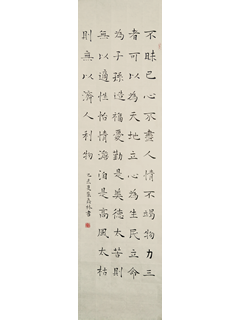 不昧己心不盡人情不竭物力三
者可以為天地立心為生民立命
為子孫造福憂勤是美德太苦則
無以適性怡情澹泊是高風太枯
則無以濟人利物